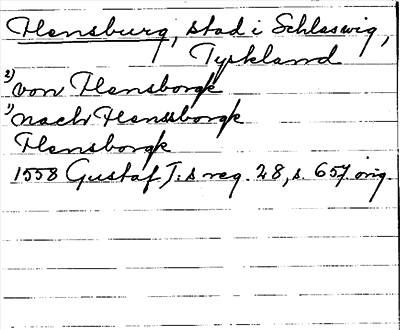 Flensburg, stad i Schleswig,
Tyskland
2) von Flensborgk
1) nach Flenssborgk
Flensborgk
1558 Gustaf I:s reg. 28, s. 657 orig.